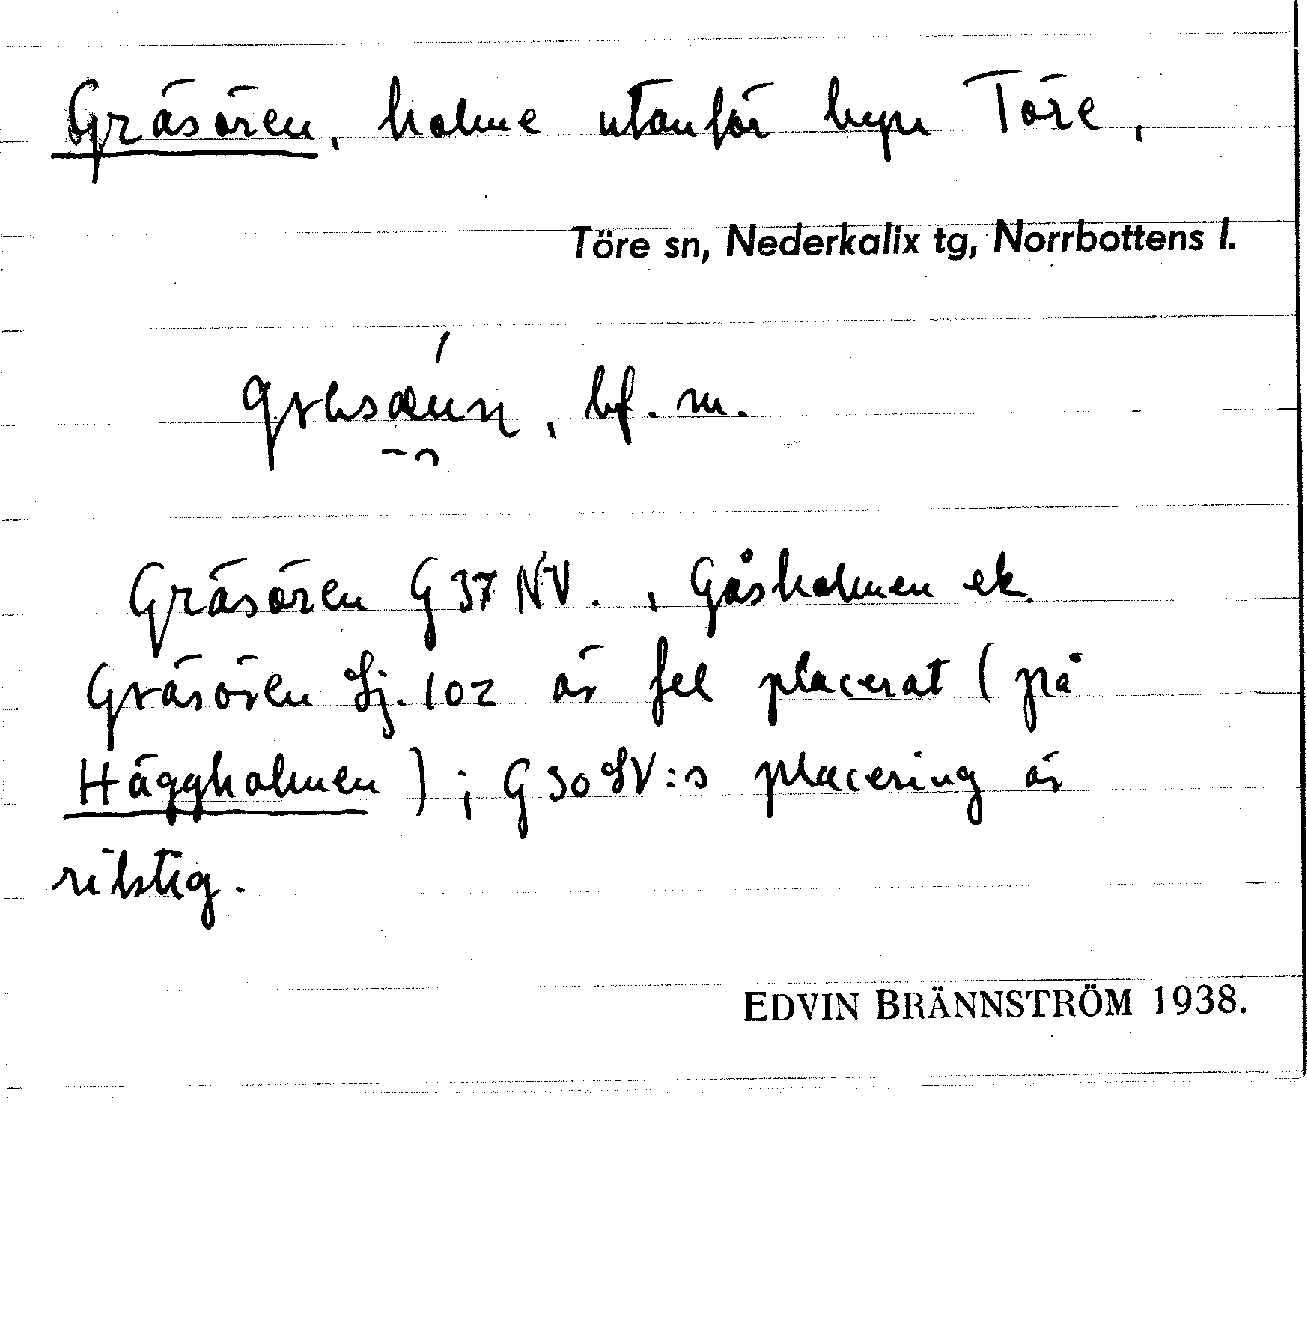 Gräsören, holme utanför byn Töre,
Töre sn, Nederkalix tg, Norrbottens l.
bf. m.
Gräsören G 37 NV., Gåsholmen ek.
Gräsören Sj. 102 är fel placerat (på
Häggholmen); G 30 SV:s placering är
riktig.
EDVIN BRÄNNSTRÖM 1938.